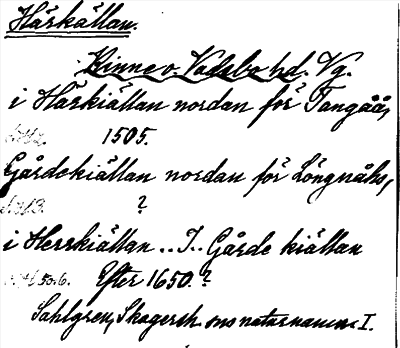 Härkällan.
Kinne o. Vadsbo hd. Vg.
i Härkiällan nordan för Tangåå,
1505.
Gårdekiällan nordan för Löngnåhs,
?
i Herrkiällan .. I.. Gårde kiällan
50.6. Efter 1650.?
Sahlgren, Skagersh. ons naturnamn I.